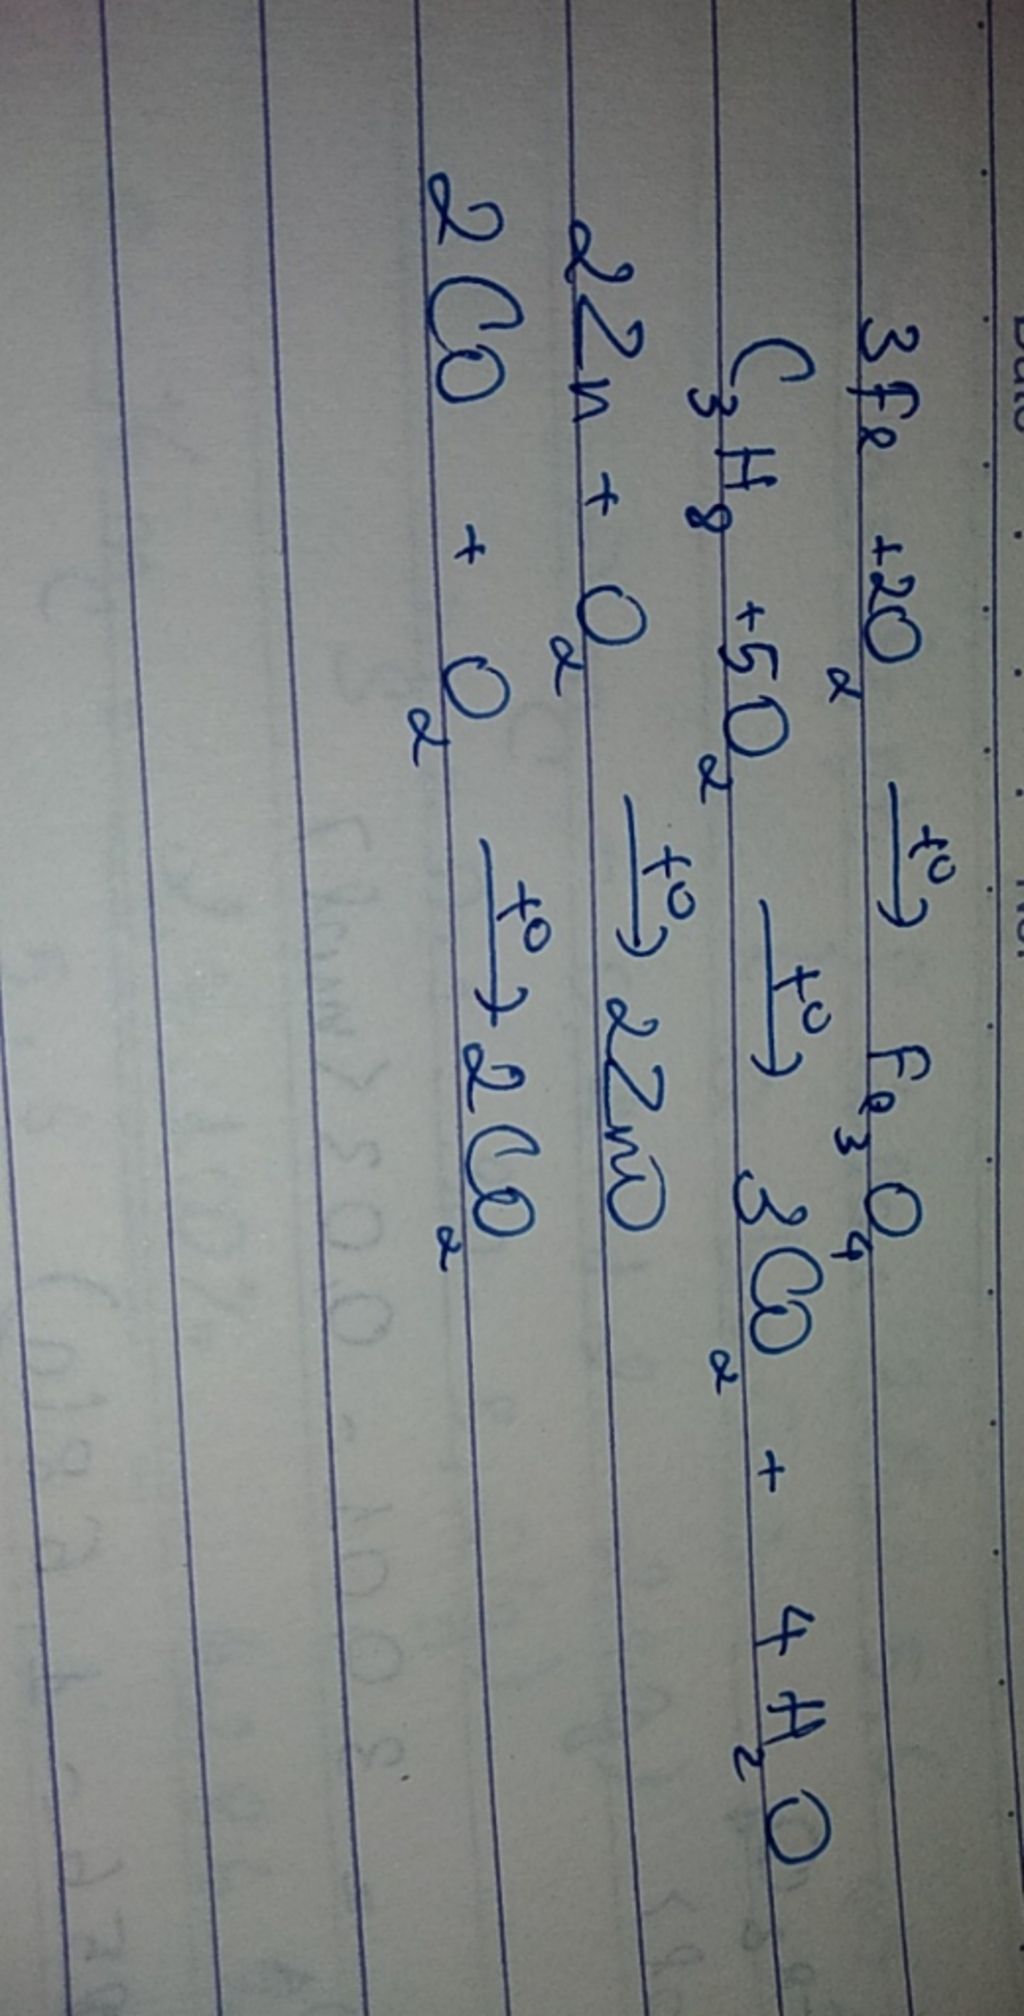 3Fe + 2O₂ →t⁰ Fe₃O₄
C₃H₈ + 5O₂ →t⁰ 3CO₂ + 4H₂O
2Zn + O₂ →t⁰ 2ZnO
2CO + O₂ →t⁰ 2CO₂